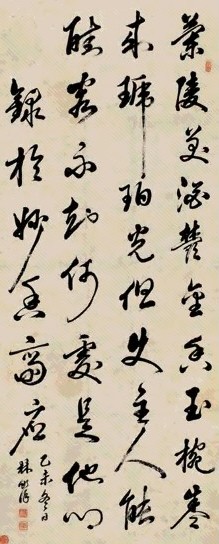 蘭陵美酒鬱金香玉椀盛
來琥珀光但使主人能
醉客不知何處是他鄉
錄於妙香齋
乙未冬日
林